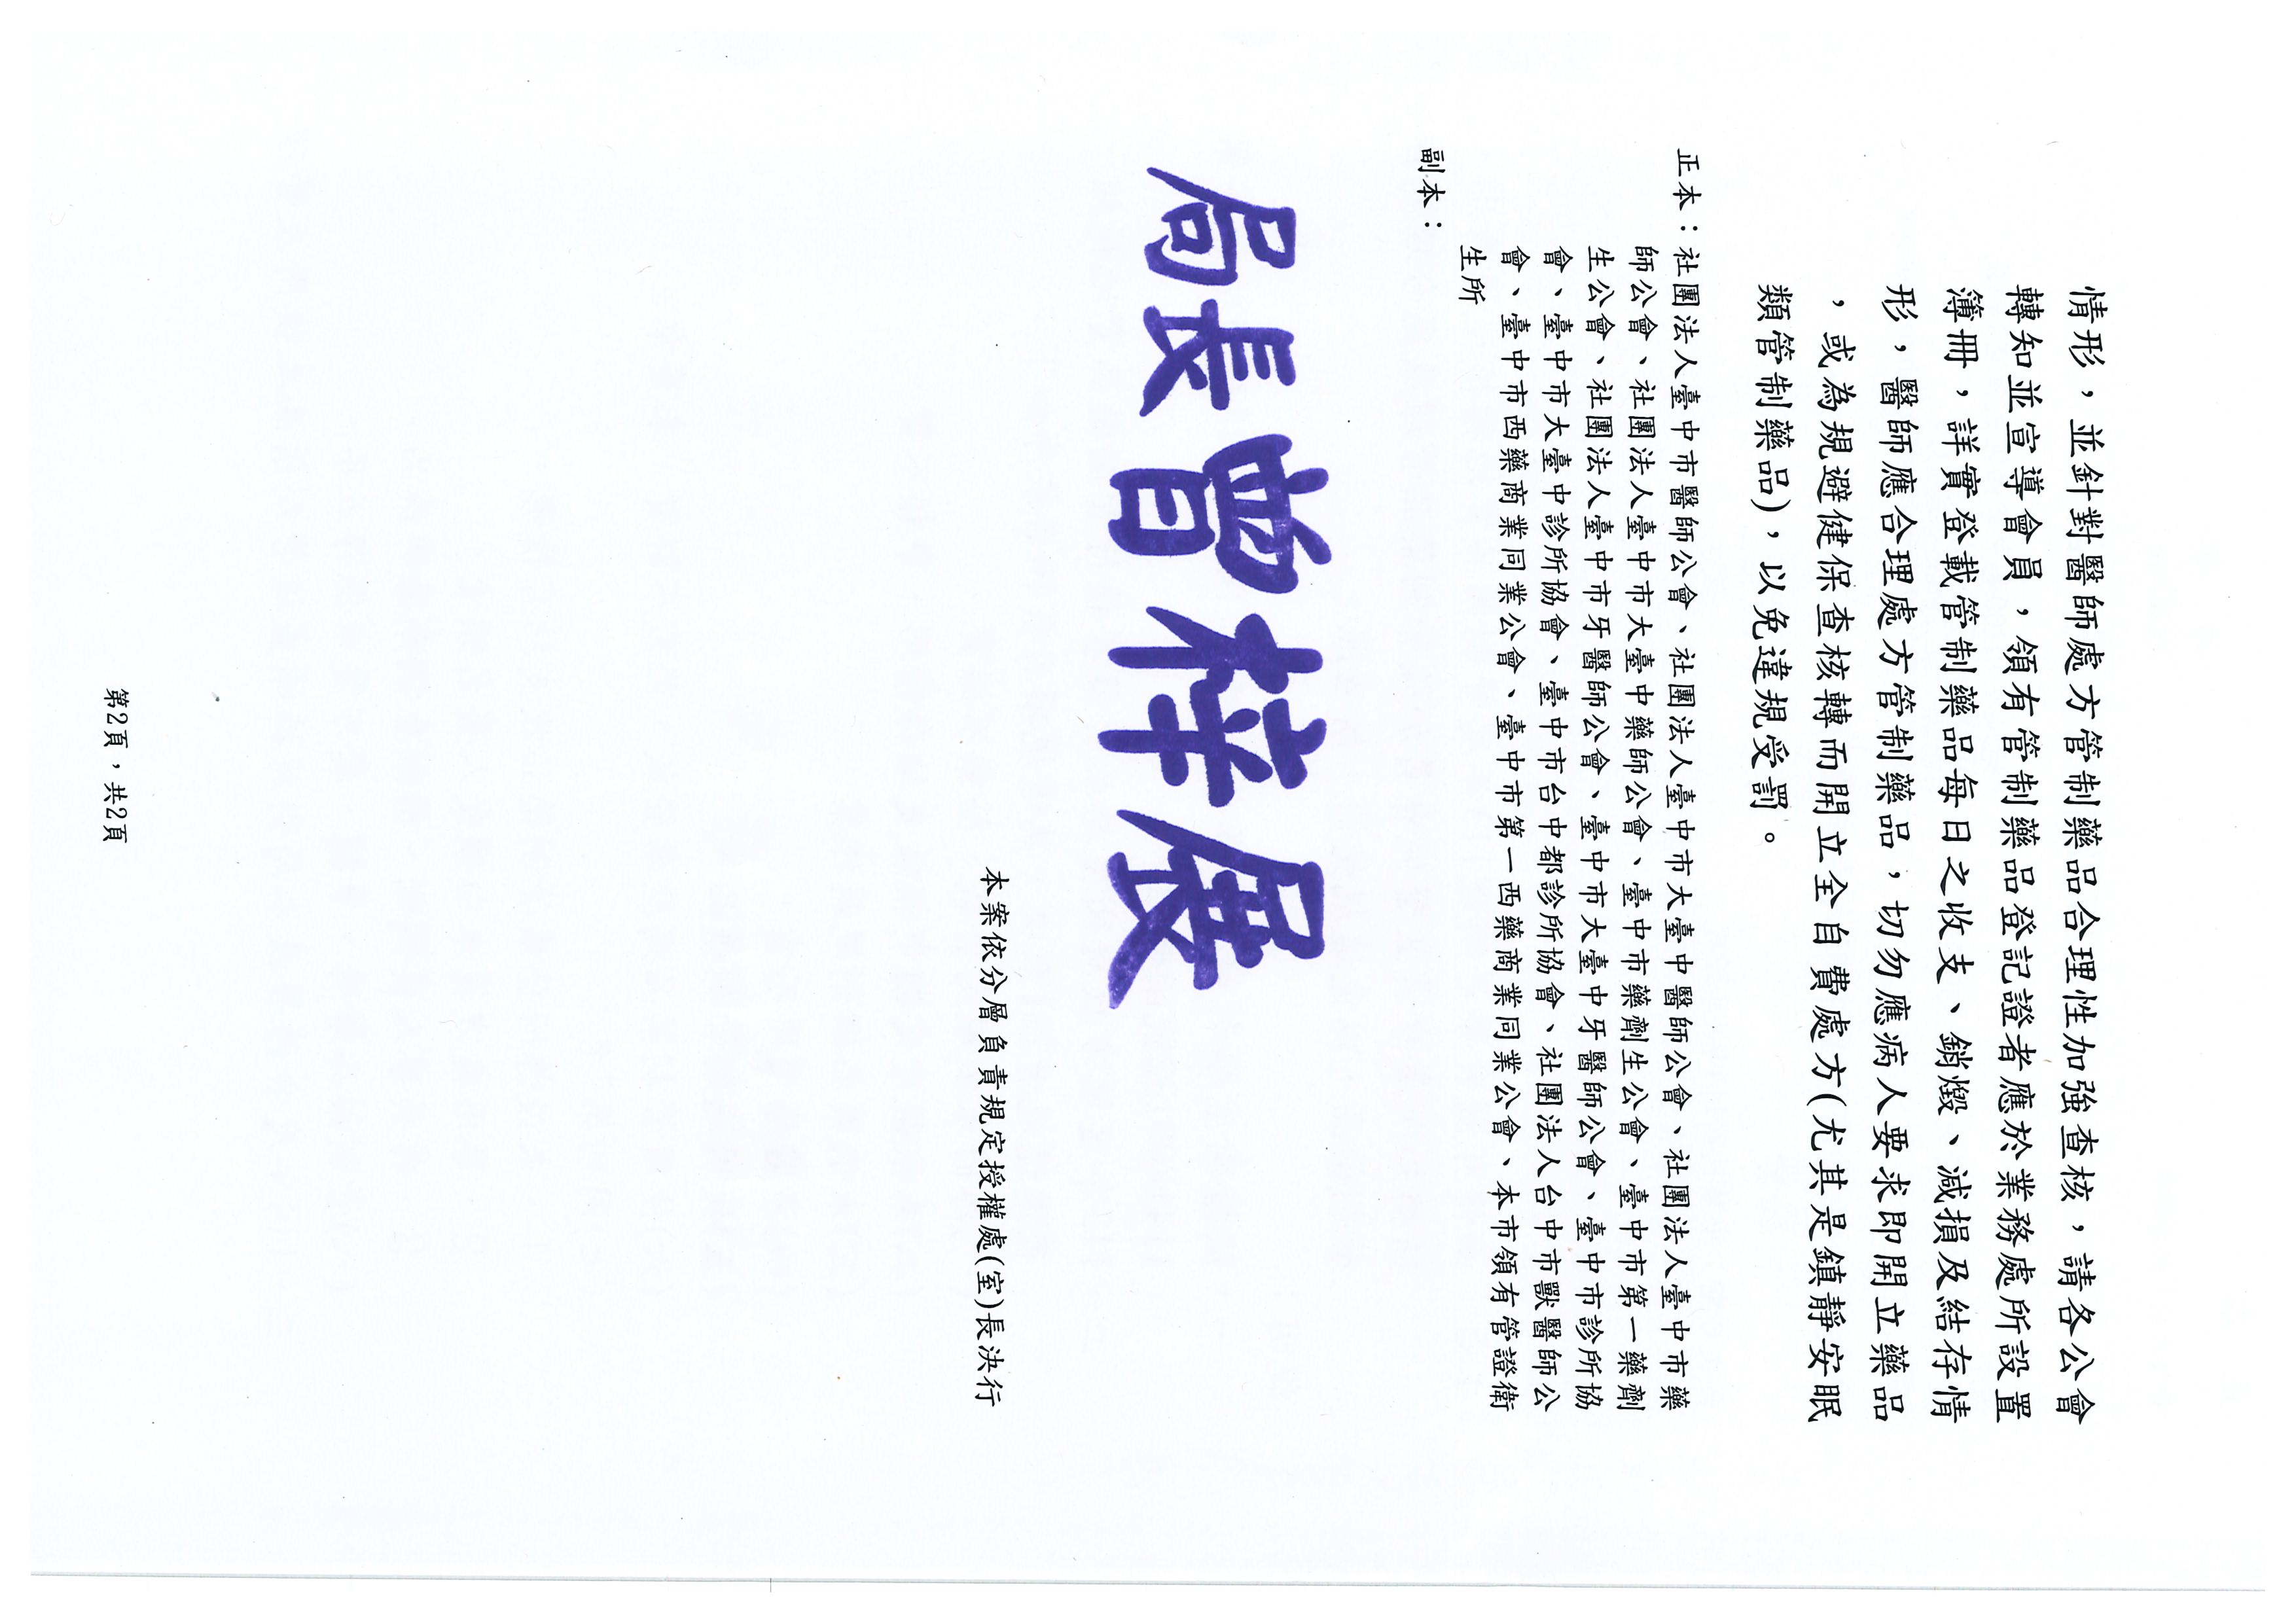 情形，並針對醫師處方管制藥品合理性加強查核，請各公會
轉知並宣導會員，領有管制藥品登記證者應於業務處所設置
簿冊，詳實登載管制藥品每日之收支、銷燬、減損及結存情
形，醫師應合理處方管制藥品，切勿應病人要求即開立藥品
，或為規避健保查核轉而開立全自費處方(尤其是鎮靜安眠
類管制藥品)，以免違規受罰。
正本：社團法人臺中市醫師公會、社團法人臺中市大臺中醫師公會、社團法人臺中市藥
師公會、社團法人臺中市大臺中藥師公會、臺中市藥劑生公會、臺中市第一藥劑
生公會、社團法人臺中市牙醫師公會、臺中市大臺中牙醫師公會、臺中市診所協
會、臺中市大臺中診所協會、臺中市台中都診所協會、社團法人台中市獸醫師公
會、臺中市西藥商業同業公會、臺中市第一西藥商業同業公會、本市領有管證衛
生所
副本：
局長曾梓展
本案依分層負責規定授權處(室)長決行
第2頁，共2頁